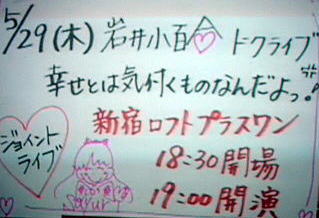 5/29(木) 岩井小百合 トークライブ
幸せとは気付くものなんだよっ!
新宿ロフトプラスワン
ジョイント
ライブ
18:30開場
19:00開演